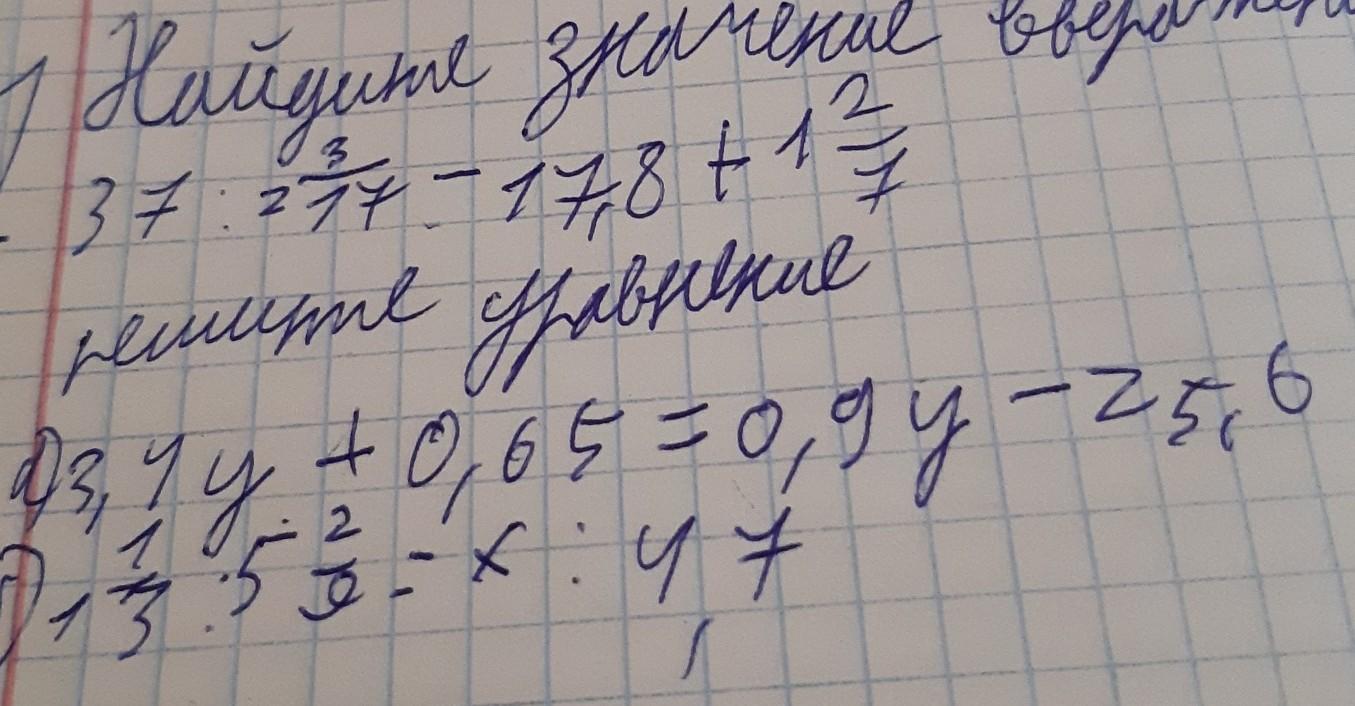 ) Найдите значение
37 : 2 3/17 - 17,8 + 1 2/7
решите уравнение
а) 3,4y + 0,65 = 0,9y - 25,6
) 1 1/3 : 5 2/9 = x : 4,7